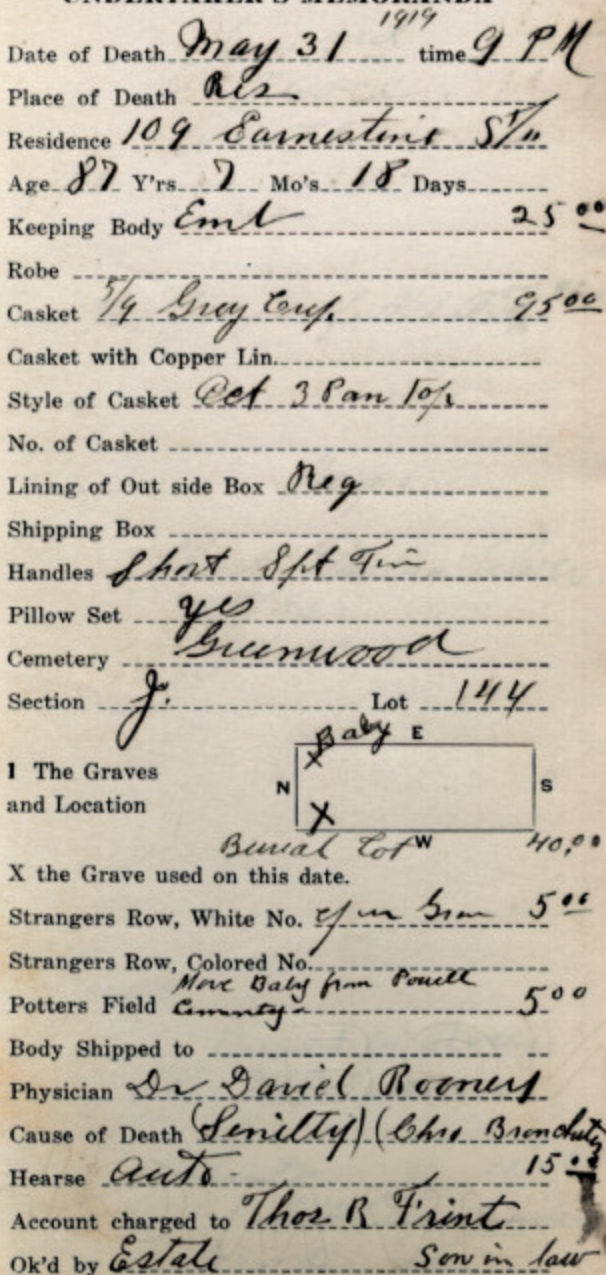 UNDERTAKER'S MEMORANDA
1919
Date of Death May 31 time 9 PM
Place of Death Res
Residence 109 Earnestine St
Age 87 Y'rs 7 Mo's 18 Days
Keeping Body Eml 25 00
Robe
Casket 5/9 Grey Crep. 95 00
Casket with Copper Lin.
Style of Casket Oct 3 Pan Top
No. of Casket
Lining of Out side Box Reg
Shipping Box
Handles Short Tin
Pillow Set yes
Cemetery Greenwood
Section J. Lot 144
Baby E
X
1 The Graves
and Location
N S
X
Burial Lot W 40.00
X the Grave used on this date.
Strangers Row, White No. 5 00
Strangers Row, Colored No.
Move Baby from Powell
Potters Field Cemetery 5 00
Body Shipped to
Physician Dr David Rooney
Cause of Death (Senilty) (Chro Bronchitis
Hearse Auto 15 00
Account charged to Thos R Trint
Ok'd by Estate Son in law